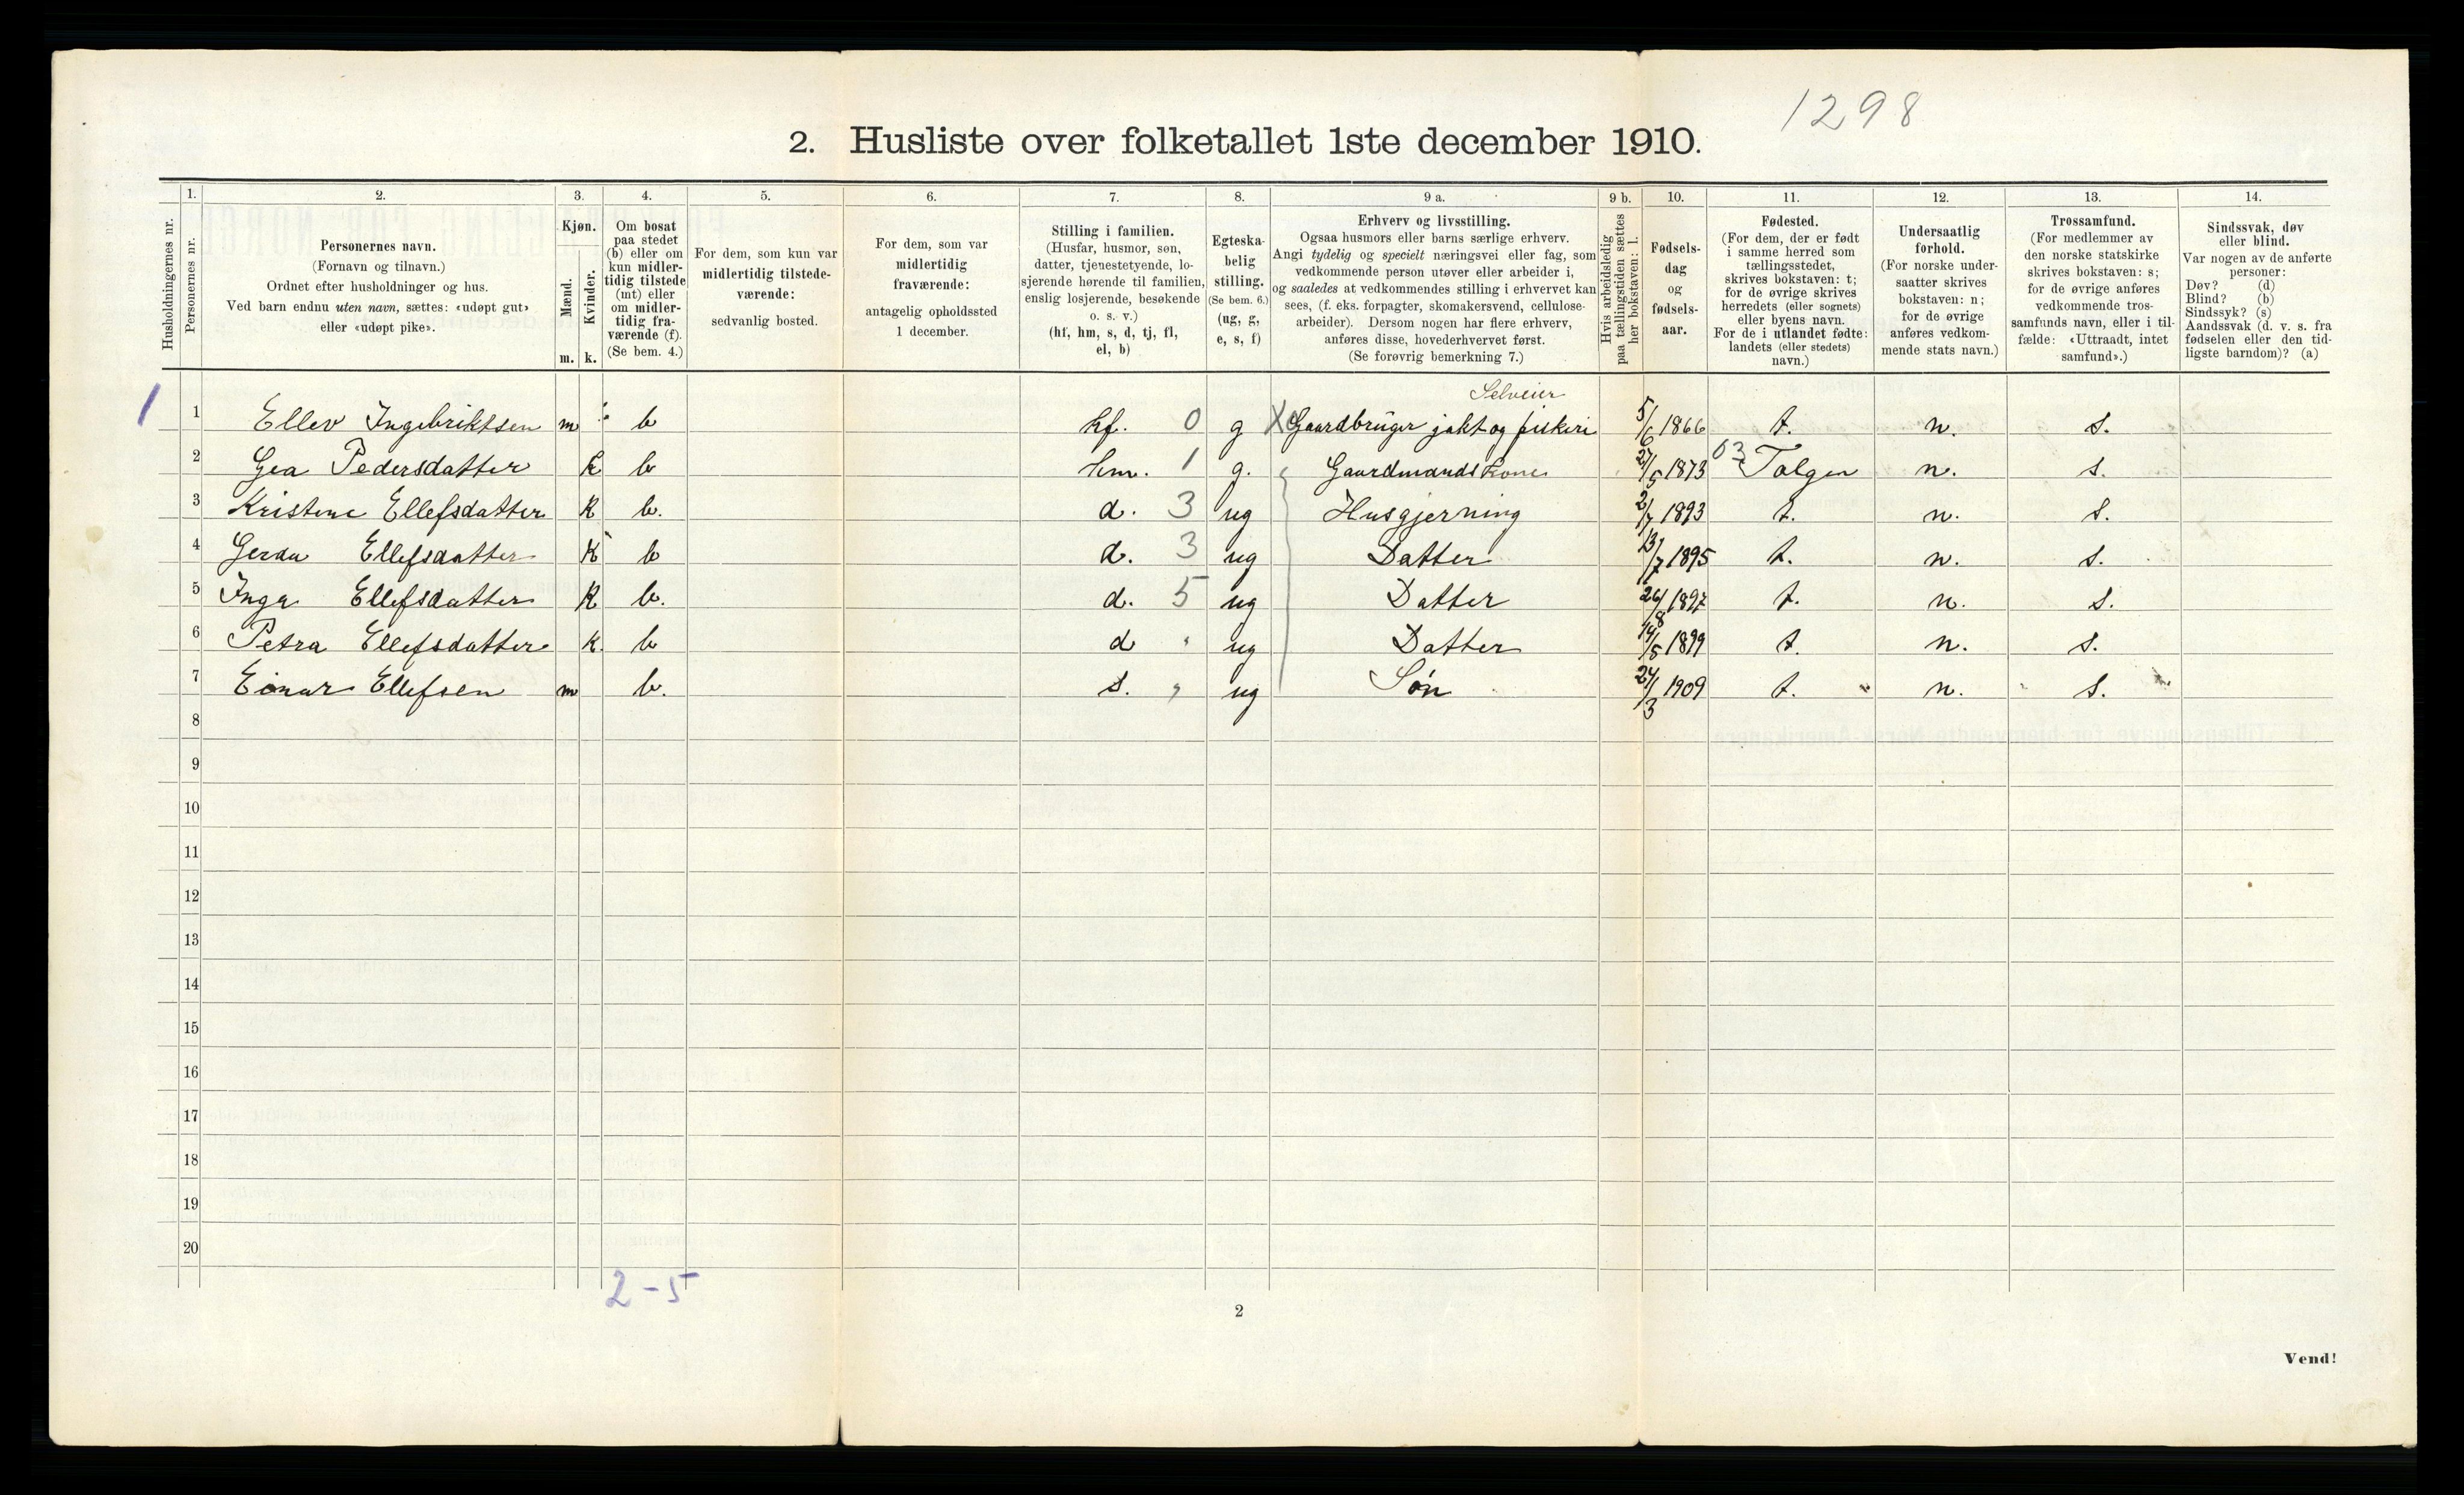 1298
2. Husliste over folketallet 1ste december 1910.
Husholdningernes nr.
1.
Personernes nr.
2.
Personernes navn.
(Fornavn og tilnavn.)
Ordnet efter husholdninger og hus.
Ved barn endnu uten navn, sættes: «udøpt gut»
eller «udøpt pike».
3.
Kjøn.
Mænd.
Kvinder.
m. k.
4.
Om bosat
paa stedet
(b) eller om
kun midler-
tidig tilstede
(mt) eller
om midler-
tidig fra-
værende (f).
(Se bem. 4.)
5.
For dem, som kun var
midlertidig tilstede-
værende:
sedvanlig bosted.
6.
For dem, som var
midlertidig
fraværende:
antagelig opholdssted
1 december.
7.
Stilling i familien.
(Husfar, husmor, søn,
datter, tjenestetyende, lo-
sjerende hørende til familien,
enslig losjerende, besøkende
o. s. v.)
(hf, hm, s, d, tj, fl,
el, b)
8.
Egteska-
belig
stilling.
(Se bem. 6.)
(ug, g,
e, s, f)
9 a.
Erhverv og livsstilling.
Ogsaa husmors eller barns særlige erhverv.
Angi tydelig og specielt næringsvei eller fag, som
vedkommende person utøver eller arbeider i,
og saaledes at vedkommendes stilling i erhvervet kan
sees, (f. eks. forpagter, skomakersvend, cellulose-
arbeider). Dersom nogen har flere erhverv,
anføres disse, hovederhvervet først.
(Se forøvrig bemerkning 7.)
9 b.
Hvis arbeidsledig
paa tællingstiden sættes
her bokstaven: l.
10.
Fødsels-
dag
og
fødsels-
aar.
11.
Fødested.
(For dem, der er født
i samme herred som
tællingsstedet,
skrives bokstaven: t;
for de øvrige skrives
herredets (eller sognets)
eller byens navn.
For de i utlandet fødte:
landets (eller stedets)
navn.)
12.
Undersaatlig
forhold.
(For norske under-
saatter skrives
bokstaven: n;
for de øvrige
anføres vedkom-
mende stats navn.)
13.
Trossamfund.
(For medlemmer av
den norske statskirke
skrives bokstaven: s;
for de øvrige anføres
vedkommende tros-
samfunds navn, eller i til-
fælde: «Uttraadt, intet
samfund».)
14.
Sindssvak, døv
eller blind.
Var nogen av de anførte
personer:
Døv? (d)
Blind? (b)
Sindssyk? (s)
Aandssvak (d. v. s. fra
fødselen eller den tid-
ligste barndom)? (a)
Selveier
1 1 Ellev Ingebriktsen m b hf. 0 g Gaardbruger jakt og fiskeri 5/6 1866 t. n. s.
2 Gea Pedersdatter k b hm. 1 g. Gaardmandskone 27/5 1873 03 Tolgen n. s.
3 Kristene Ellefsdatter k b. d. 3 ug Husgjerning 2/7 1893 t. n. s.
4 Gerda Ellefsdatter k b d. 3 ug Datter 13/7 1895 t. n. s.
5 Inga Ellefsdatter k b. d. 5 ug Datter 26/8 1897 t. n. s.
6 Petra Ellefsdatter k. b d " ug Datter 14/5 1899 t. n. s.
7 Einar Ellefsen m b. s. " ug Søn 24/3 1909 t. n. s.
8
9
10
11
12
13
14
15
16
17
18
19
20
2-5
2
Vend!